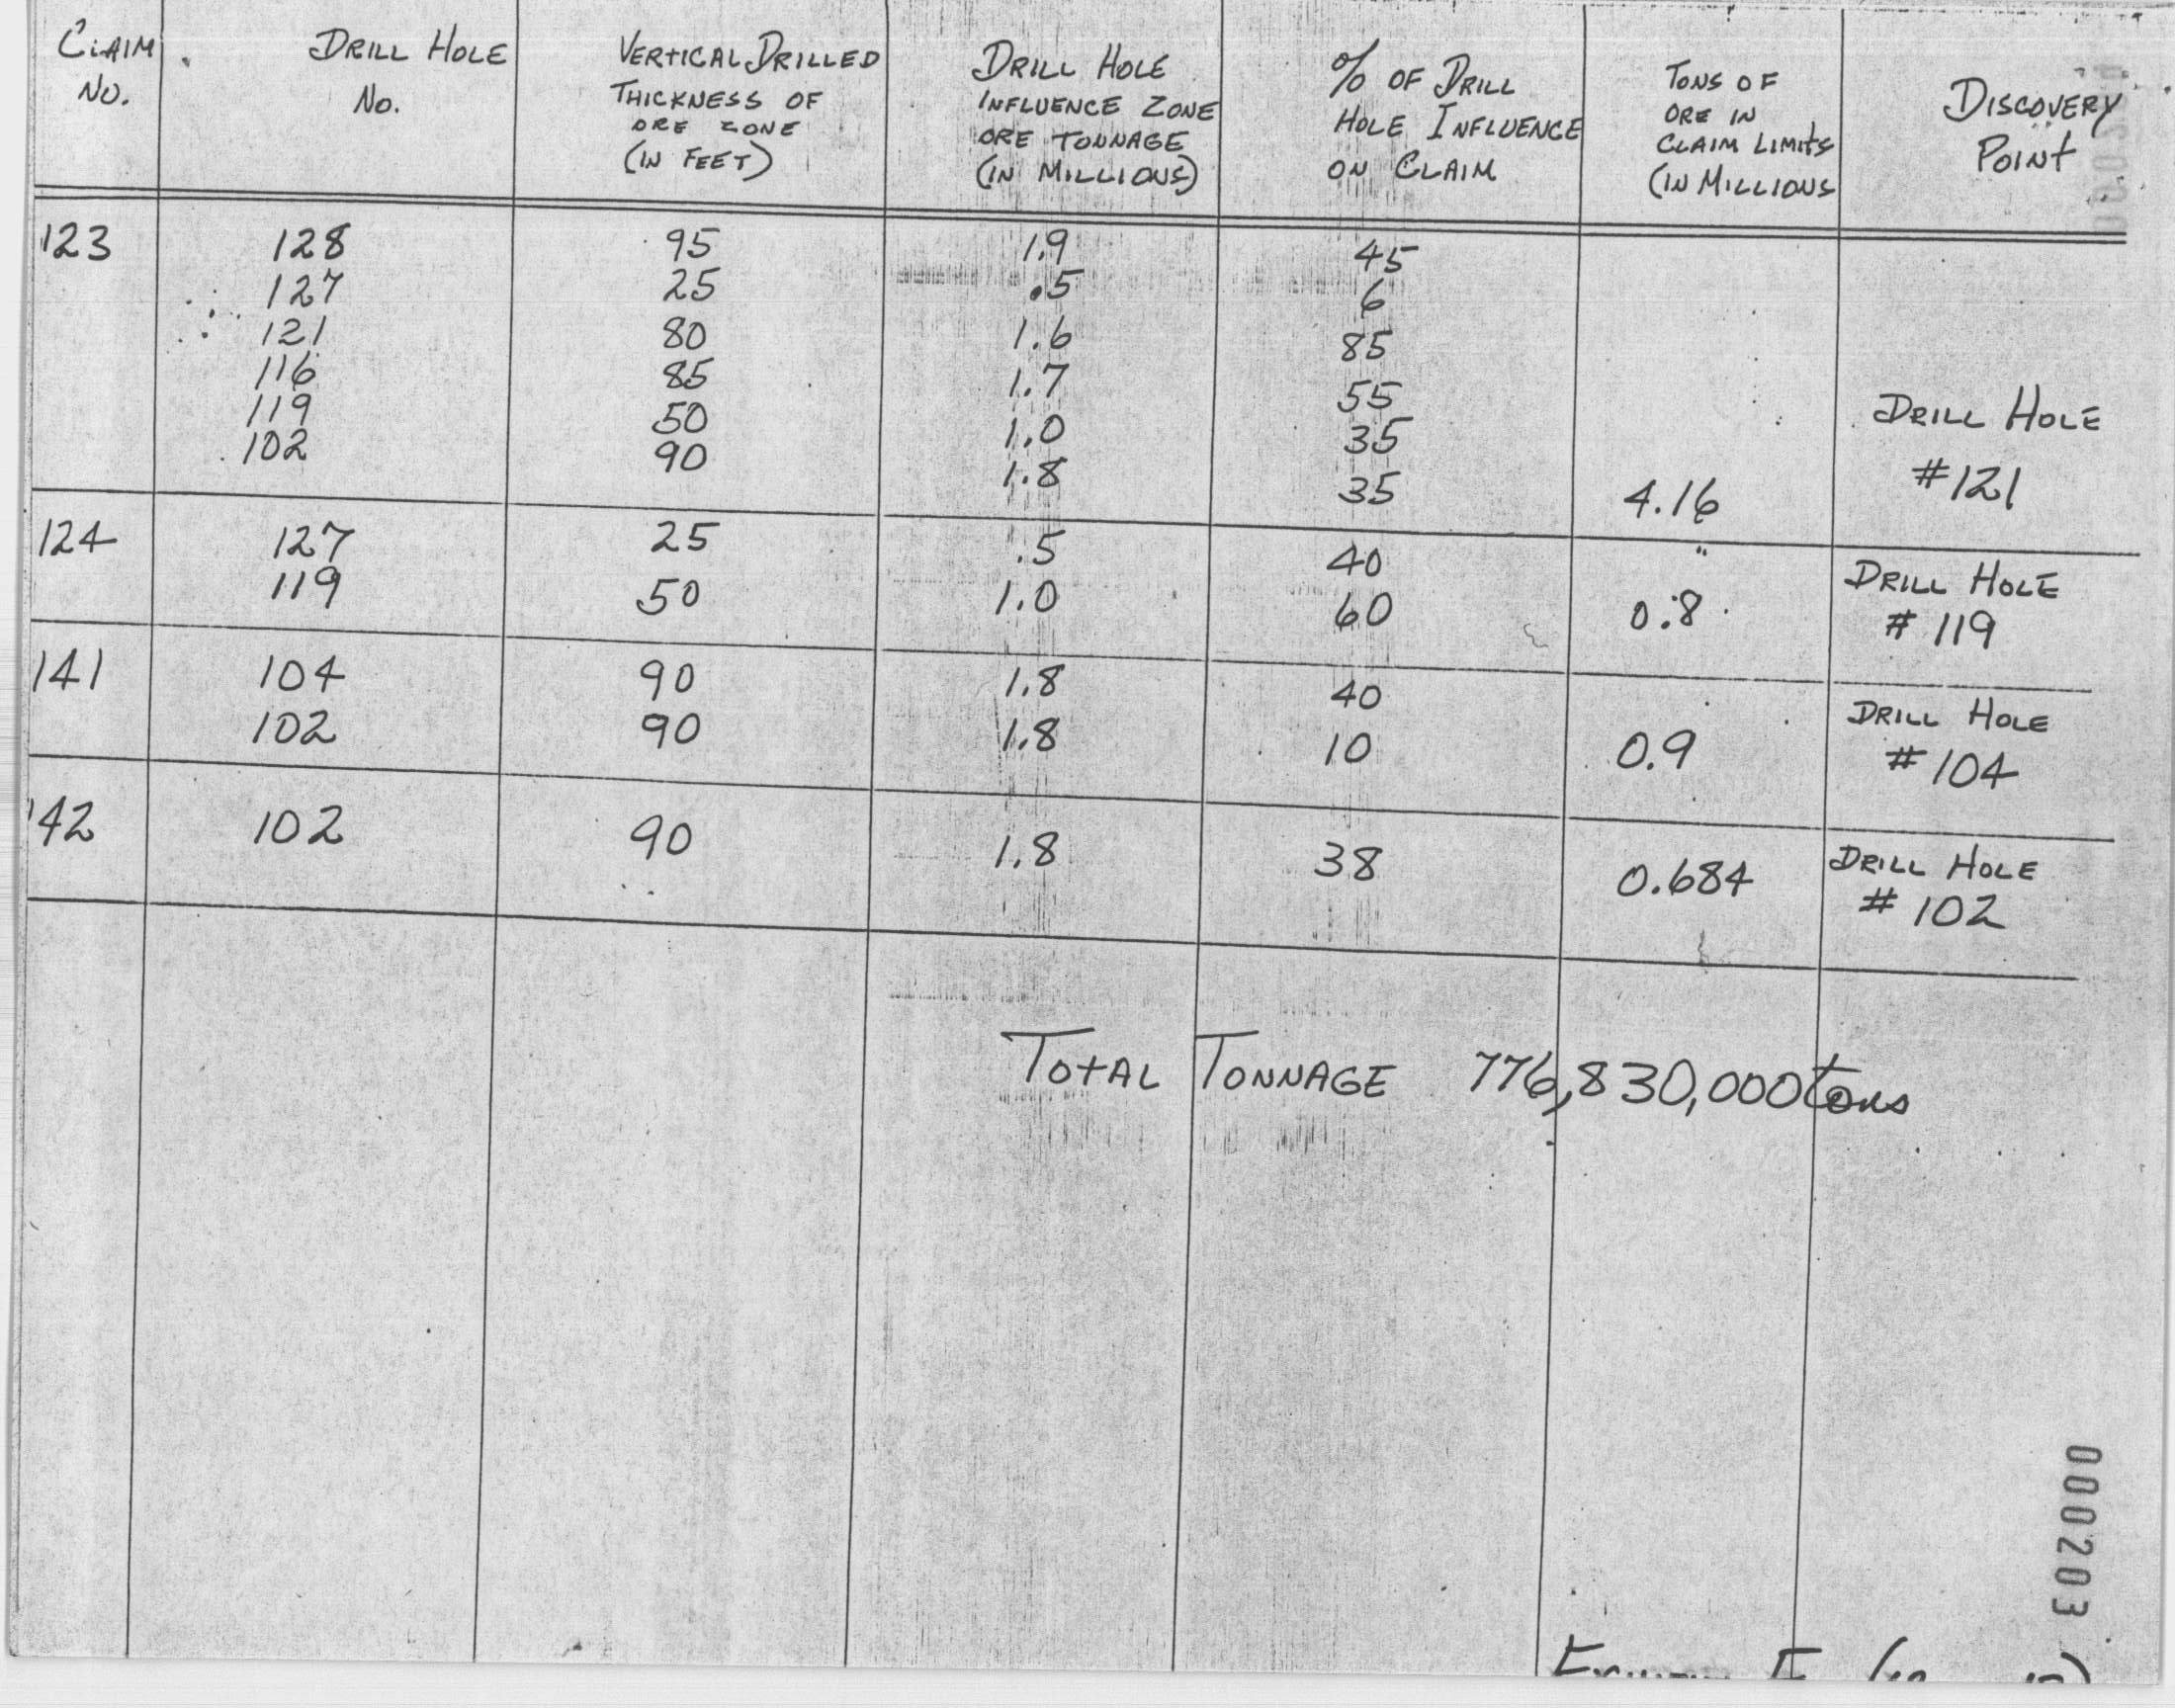 CLAIM NO. DRILL HOLE NO. VERTICAL DRILLED THICKNESS OF ORE ZONE (IN FEET) DRILL HOLE INFLUENCE ZONE ORE TONNAGE (IN MILLIONS) % OF DRILL HOLE INFLUENCE ON CLAIM TONS OF ORE IN CLAIM LIMITS (IN MILLIONS DISCOVERY POINT
123 128 95 1.9 45
127 25 .5 6
121 80 1.6 85
116 85 1.7 55
119 50 1.0 35
102 90 1.8 35 4.16 DRILL HOLE #121
124 127 25 .5 40
119 50 1.0 60 0.8 DRILL HOLE # 119
141 104 90 1.8 40
102 90 1.8 10 0.9 DRILL HOLE # 104
142 102 90 1.8 38 0.684 DRILL HOLE # 102
TOTAL TONNAGE 776,830,000 tons
000203